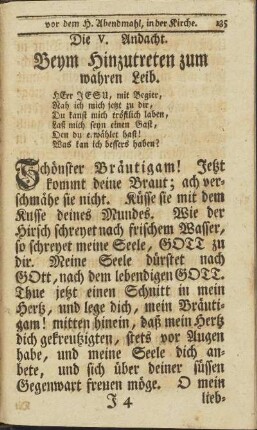 vor dem H. Abendmahl, in der Kirche. 135
Die V. Andacht.
Beym Hinzutreten zum
wahren Leib.
HErr JESU, mit Begier,
Nah ich mich jetzt zu dir,
Du kanst mich tröstlich laben,
Laß mich seyn einen Gast,
Den du e.wählet hast!
Was kan ich bessers haben?
Schönster Bräutigam! Jetzt
kommt deine Braut; ach ver-
schmähe sie nicht. Küsse sie mit dem
Kusse deines Mundes. Wie der
Hirsch schreyet nach frischem Wasser,
so schreyet meine Seele, GOTT zu
dir. Meine Seele dürstet nach
GOtt, nach dem lebendigen GOTT.
Thue jetzt einen Schnitt in mein
Hertz, und lege dich, mein Bräuti-
gam! mitten hinein, daß mein Hertz
dich gekreutzigten, stets vor Augen
habe, und meine Seele dich an-
bete, und sich über deiner süssen
Gegenwart freuen möge. O mein
J 4 lieb-